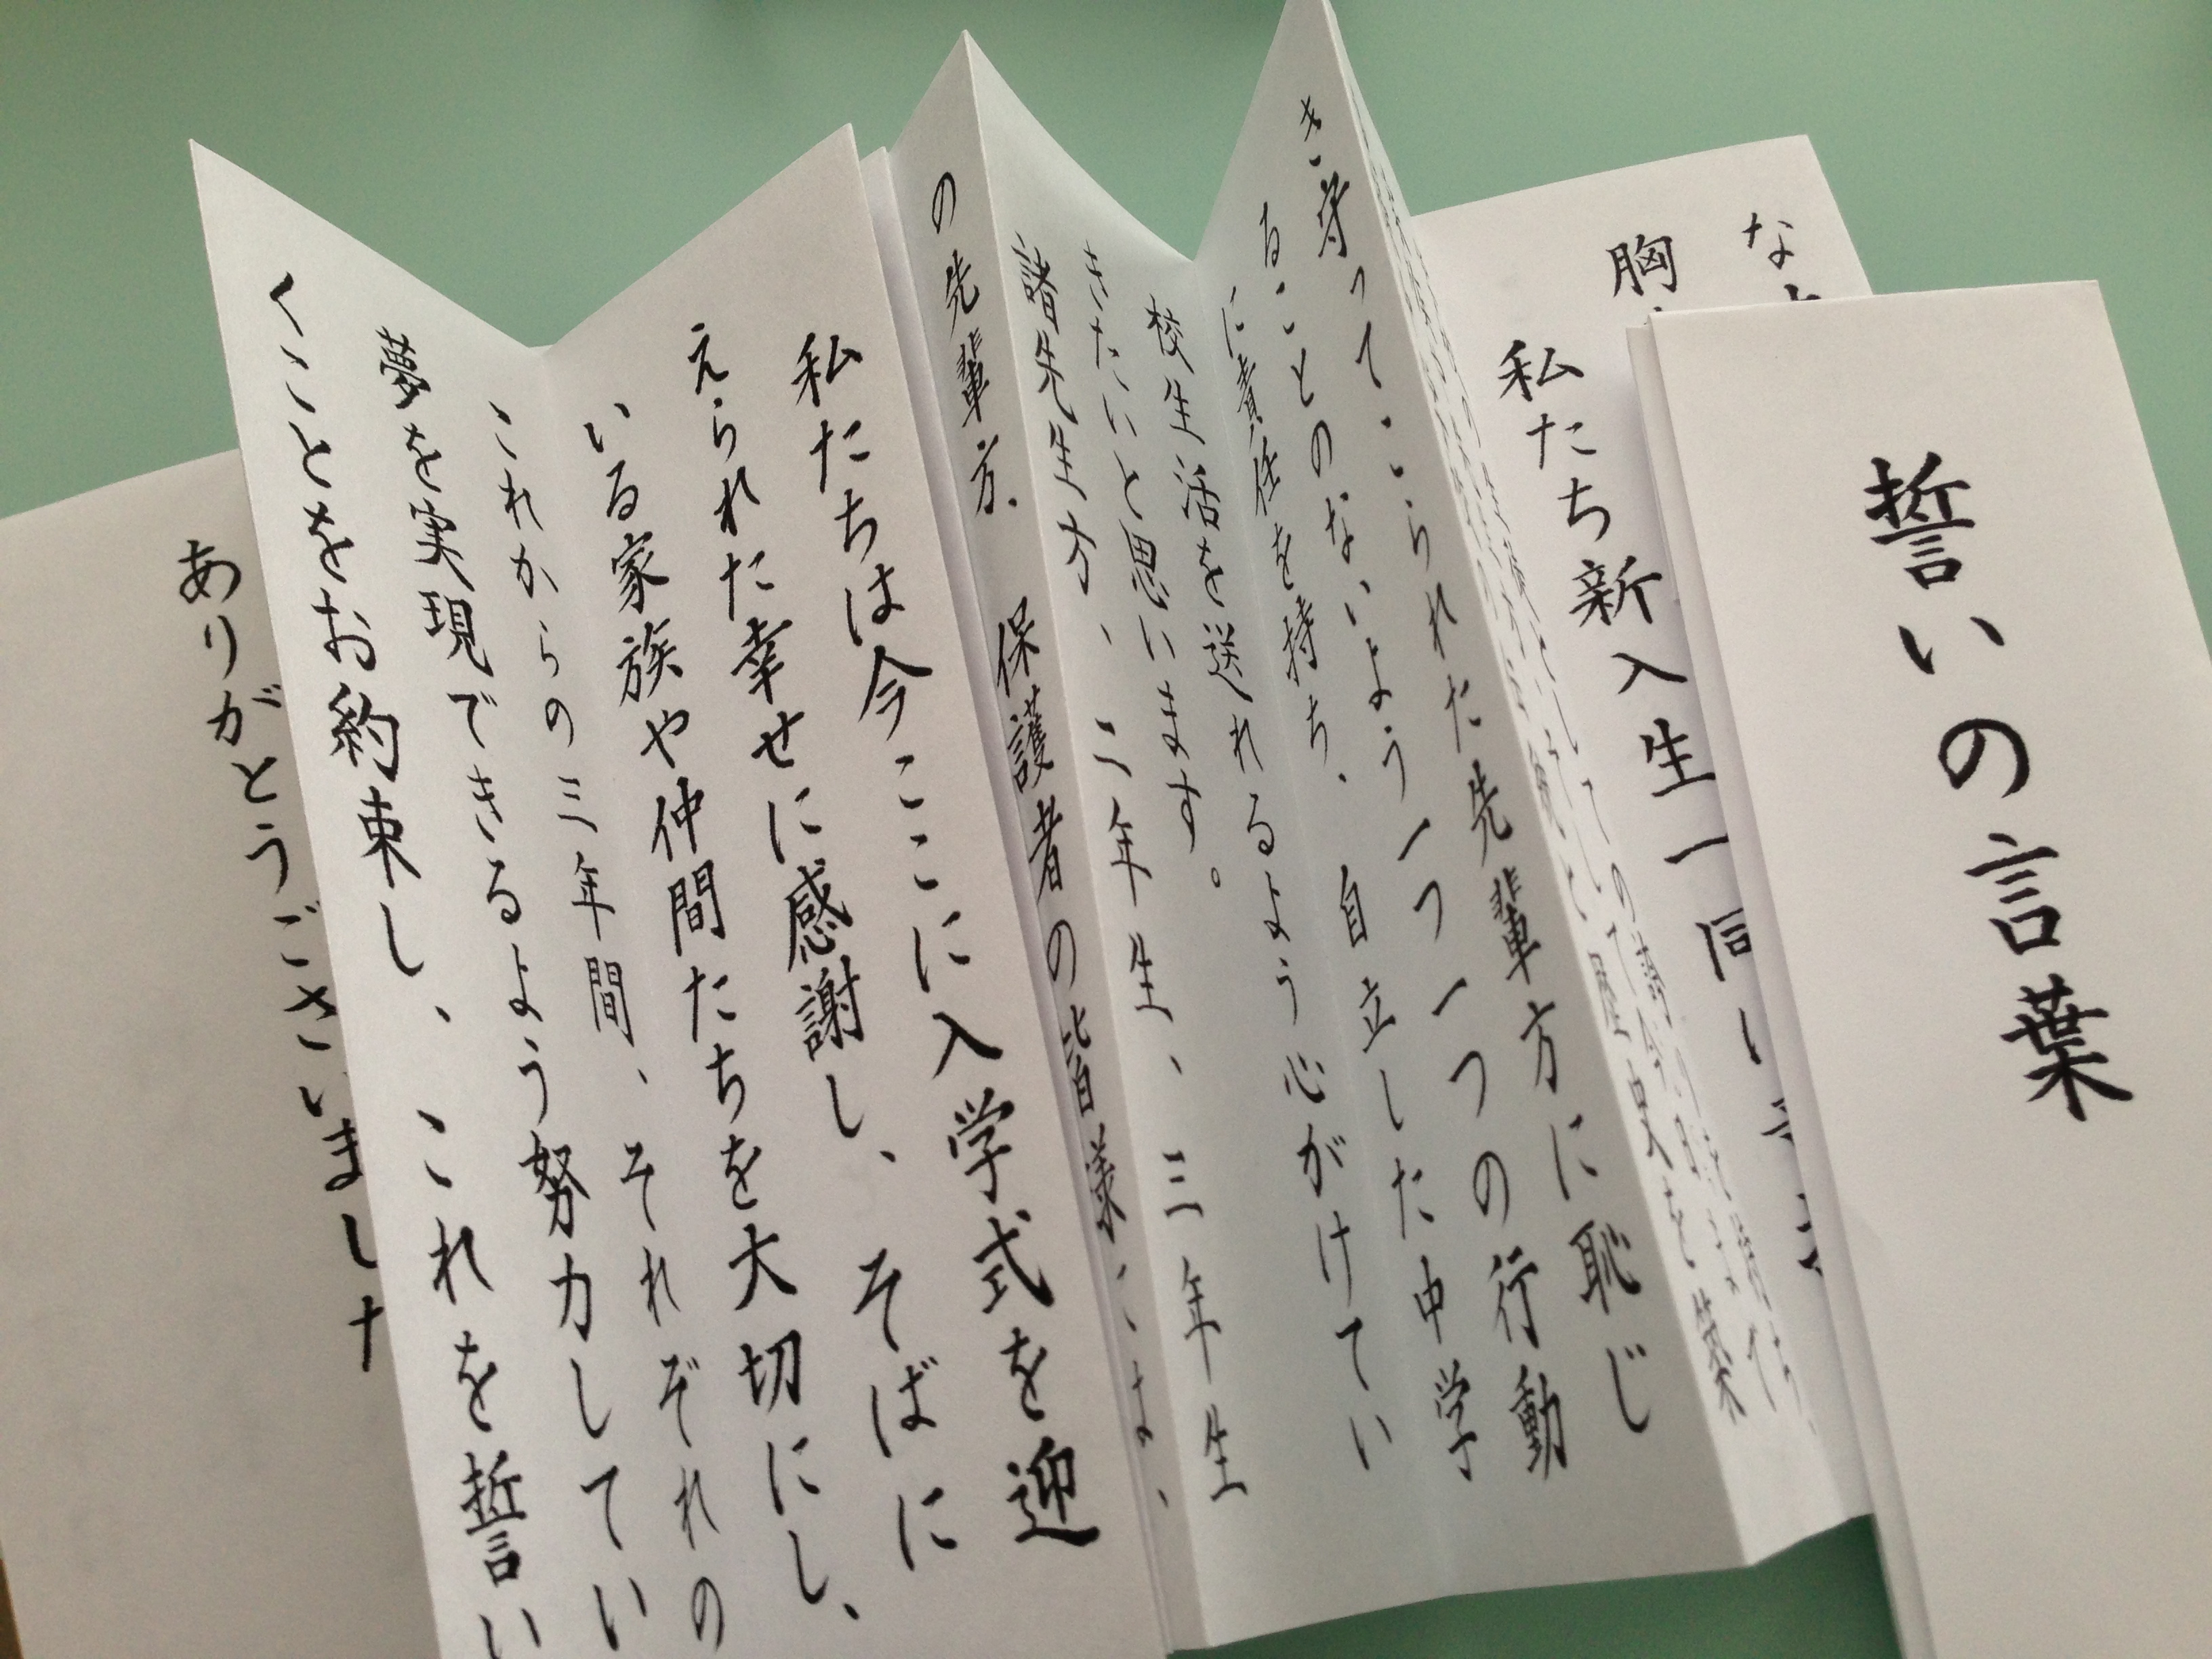 誓いの言葉
な
胸
私たち新入生一同
き守ってこられた先輩方に恥じ
ることのないよう一つ一つの行動
に責任を持ち、自立した中学
校生活を送れるよう心がけてい
きたいと思います。
諸先生方、二年生、三年生
の先輩方、保護者の皆様には、
私たちは今ここに入学式を迎
えられた幸せに感謝し、そばに
いる家族や仲間たちを大切にし、
これからの三年間、それぞれの
夢を実現できるよう努力してい
くことをお約束し、これを誓い
ありがとうございました